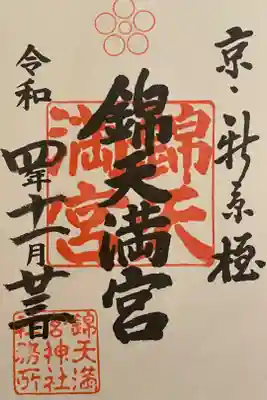 京・新京極
錦天満宮
錦天
満宮
令和
四年十一月廿三日
錦天満
宮神社
務所